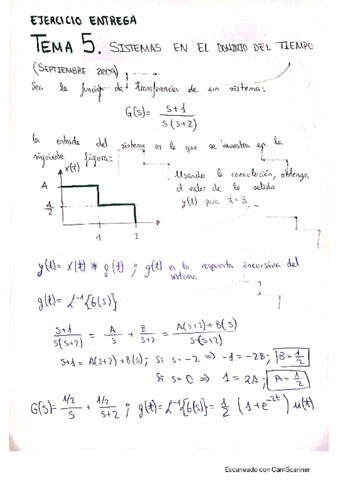 EJERCICIO ENTREGA
TEMA 5. SISTEMAS EN EL DOMINIO DEL TIEMPO
(SEPTIEMBRE 2009)
Sea la función de transferencia de un sistema:
G(s) = s+1 / s(s+2)
La entrada del sistema es la que se muestra en la
siguiente figura:
x(t)
A
A/2
1 2
Usando la convolución, obtenga
el valor de la salida
y(t) para t=3
y(t) = x(t) * g(t) ; g(t) es la respuesta impulsiva del
sistema
g(t) = L⁻¹{G(s)}
s+1 / s(s+2) = A/s + B/s+2 = A(s+2)+B(s) / s(s+2)
s+1 = A(s+2) + B(s) ; Si s=-2 => -1=-2B ; B=1/2
Si s=0 => 1=2A ; A=1/2
G(s) = 1/2 / s + 1/2 / s+2 ; g(t) = L⁻¹{G(s)} = 1/2 (1+e^-2t) u(t)
Escaneado con CamScanner